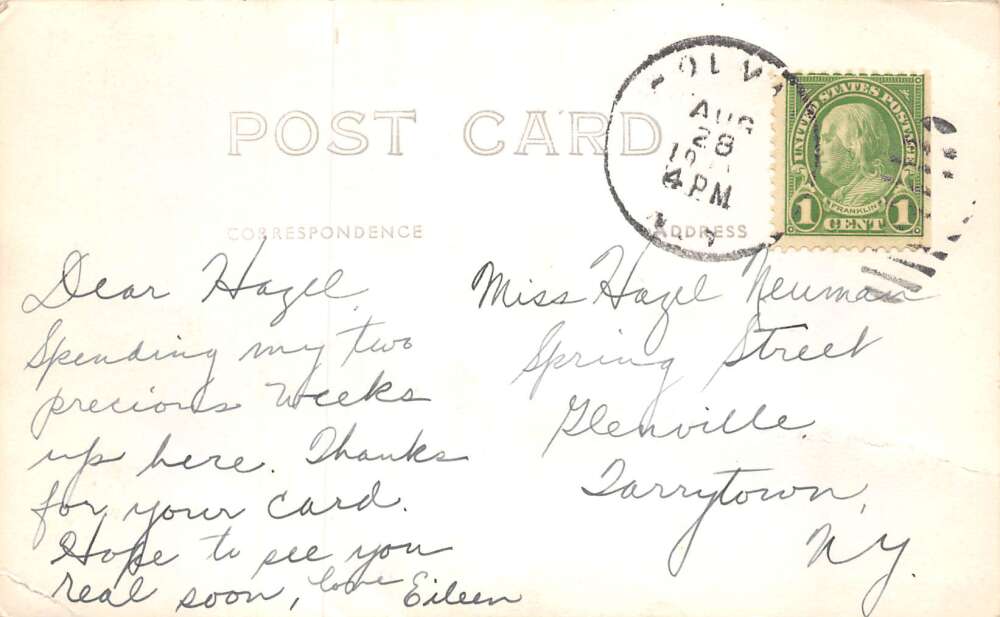 POST CARD
AUG
28
4 PM
N.Y.
UNITED STATES POSTAGE
FRANKLIN
1 CENT 1
CORRESPONDENCE
ADDRESS
Dear Hazel,
Spending my two
precious weeks
up here. Thanks
for your card.
Hope to see you
real soon, love Eileen
Miss Hazel Neuman
Spring Street
Glenville
Tarrytown,
N.Y.